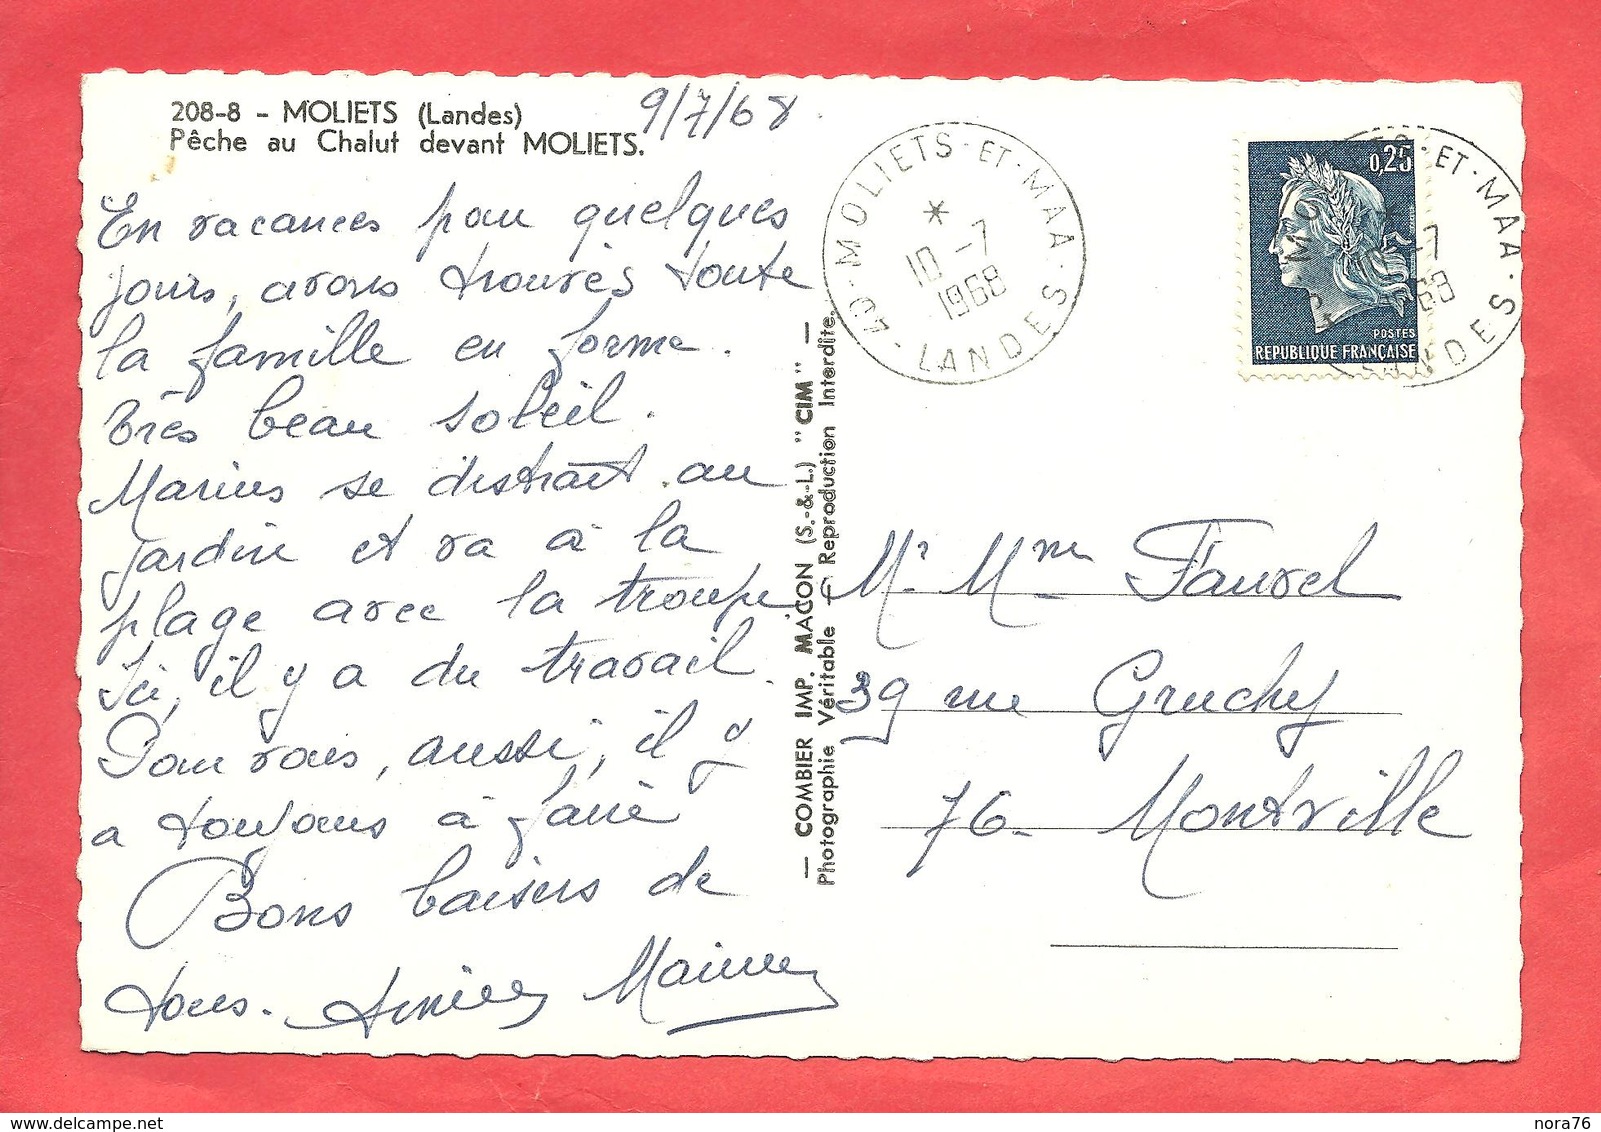 208-8 - MOLIETS (Landes)
Pêche au Chalut devant MOLIETS.
9/7/68.
En vacances pour quelques
jours, avons trouvés toute
la famille en forme.
Très beau soleil.
Marius se distrait au
jardin et va à la
plage avec la troupe
Ici, il y a du travail.
Pour vous, aussi, il y
a toujours à faire
Bons baisers de
tous.
— COMBIER IMP. MACON (S.-&-L.) "CIM" —
Photographie Véritable — Reproduction Interdite.
40 - MOLIETS - ET - MAA - LANDES
*
10 -7
1968
0,25
POSTES
REPUBLIQUE FRANÇAISE
ET - MAA
-7
68
Mr Mme Faurel
39 rue Gruchy
76 - Montville
nora76